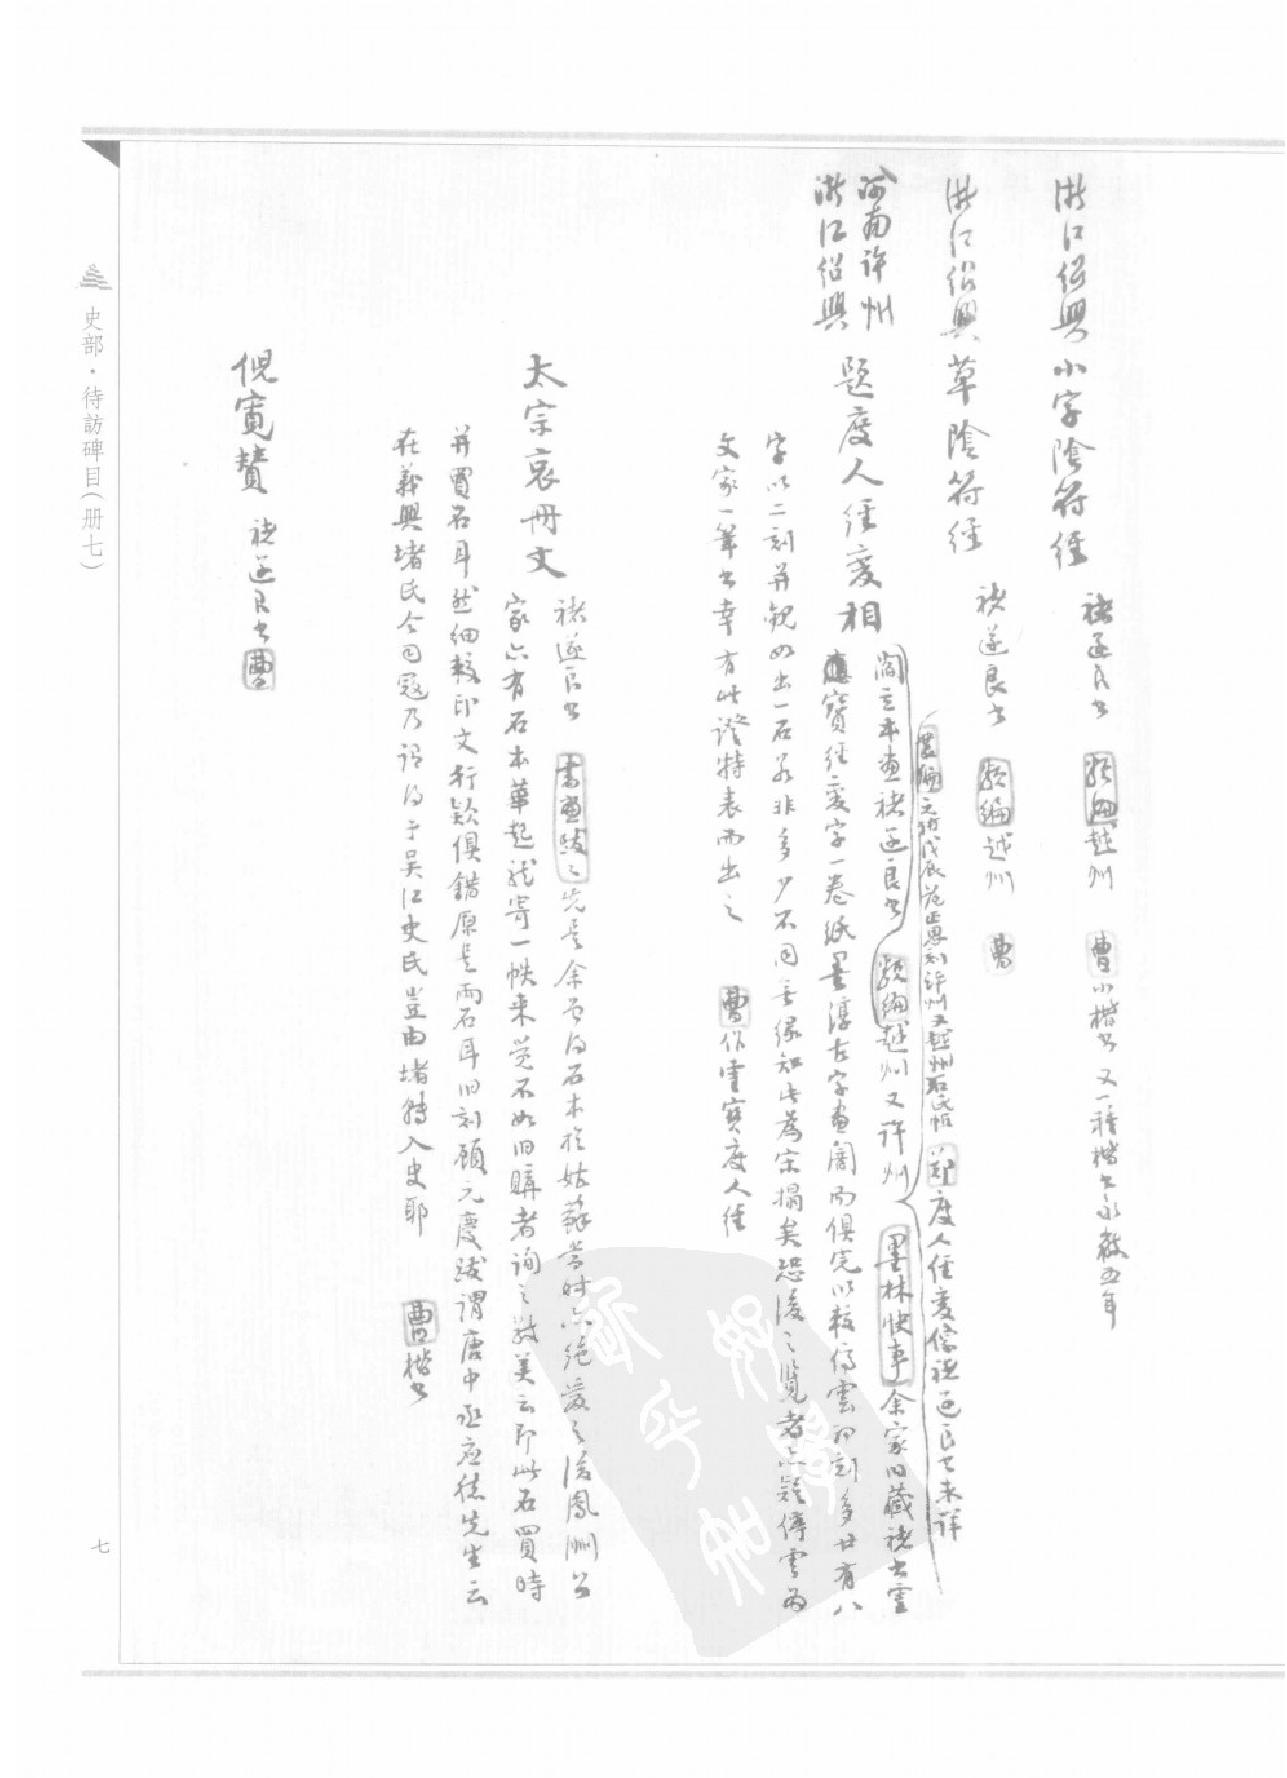 浙江紹興小字陰符經
褚遂良书 類編越州 曹小楷书 又一種楷书永徽五年
浙江紹興草陰符經
褚遂良书 類編越州 曹
河南許州
浙江紹興
題度人經變相
叢編元祐戊辰范正思刻許州又越州石氏帖 鄭度人經變像褚遂良书未詳
閻立本畫褚遂良书 類編越州又許州 墨林快事余家旧藏褚书靈
寶經變字一卷紙墨淳古字畫闇而俱完以較停雲初刻多廿有八
字以二刻并觀如出一石若非多少不同無緣知此為宋搨矣恐後之覽者亦疑停雲为
文家一筆书幸有此證特表而出之 曹作靈寶度人經
太宗哀冊文
褚遂良书 書畫跋之先是余曾得石本於姑蘇當時亦絕愛之後鳳洲公
家亦有石本華起龍寄一帙来覺不如旧購者詢之敬美云即此石買時
并買石耳然細較印文行款俱錯原是兩石耳旧刻顧元慶跋謂唐中丞應德先生云
在義興堵氏今司寇乃謂得于吳江史氏豈由堵轉入史耶 曹楷书
倪寬贊
褚遂良书 曹
史部·待訪碑目（册七）
七